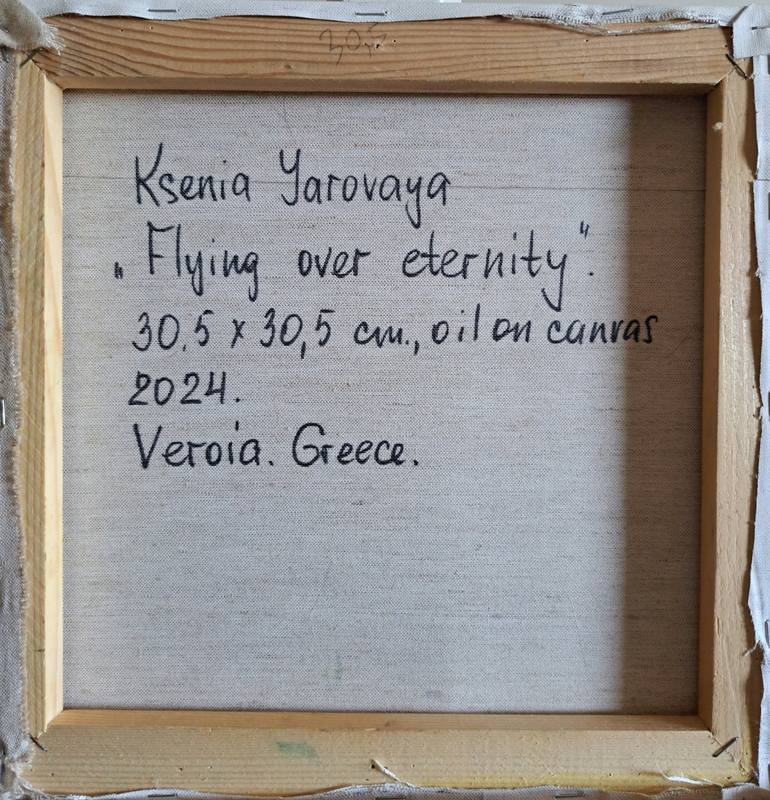 30,5
Ksenia Yarovaya
„Flying over eternity".
30,5 x 30,5 cm., oil on canvas
2024.
Veroia. Greece.